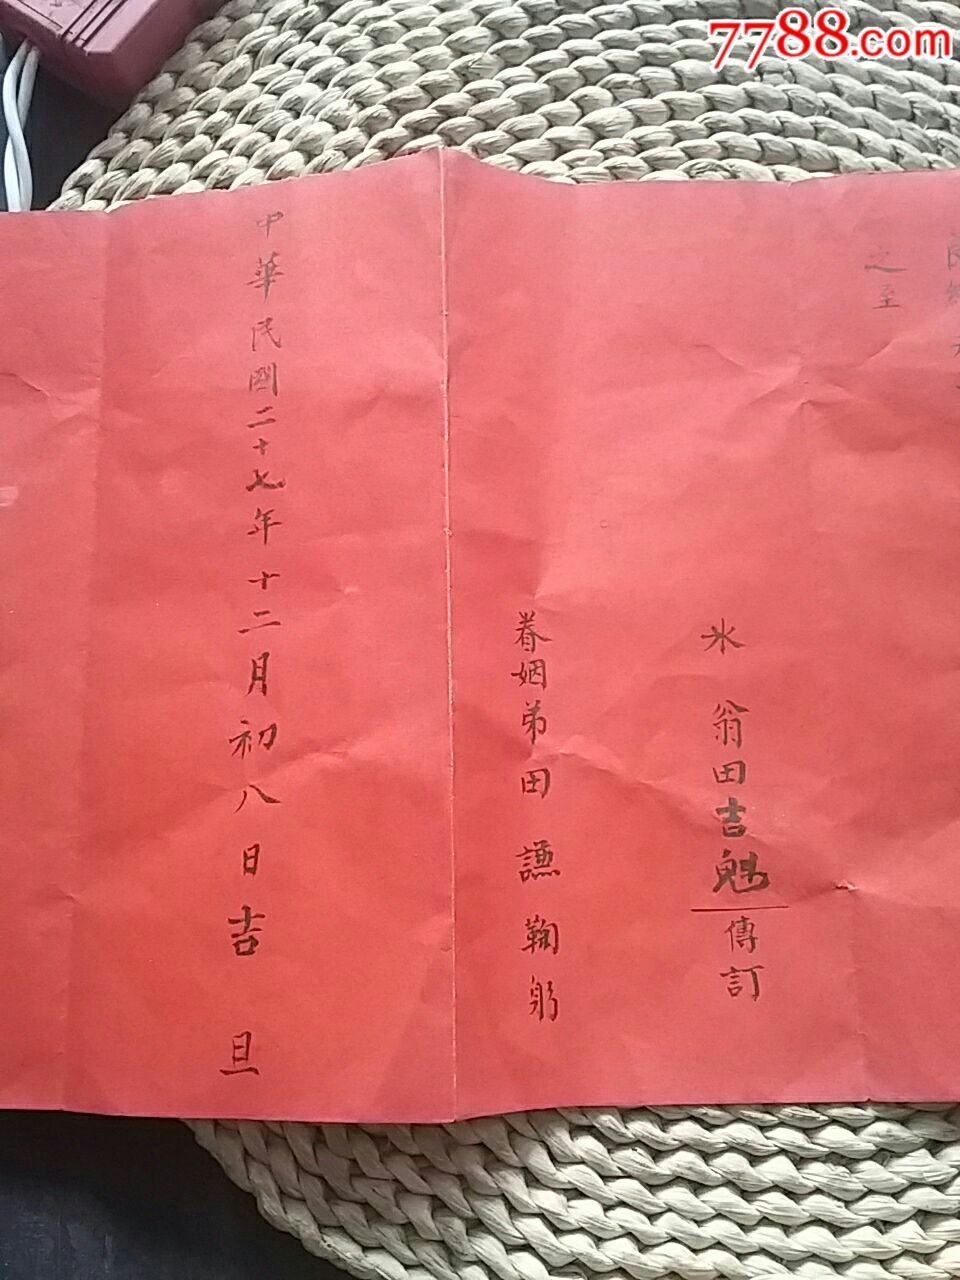 7788.com
之至
氷翁田吉魁傳訂
眷姻弟田謙鞠躬
中華民國二十七年十二月初八日吉旦